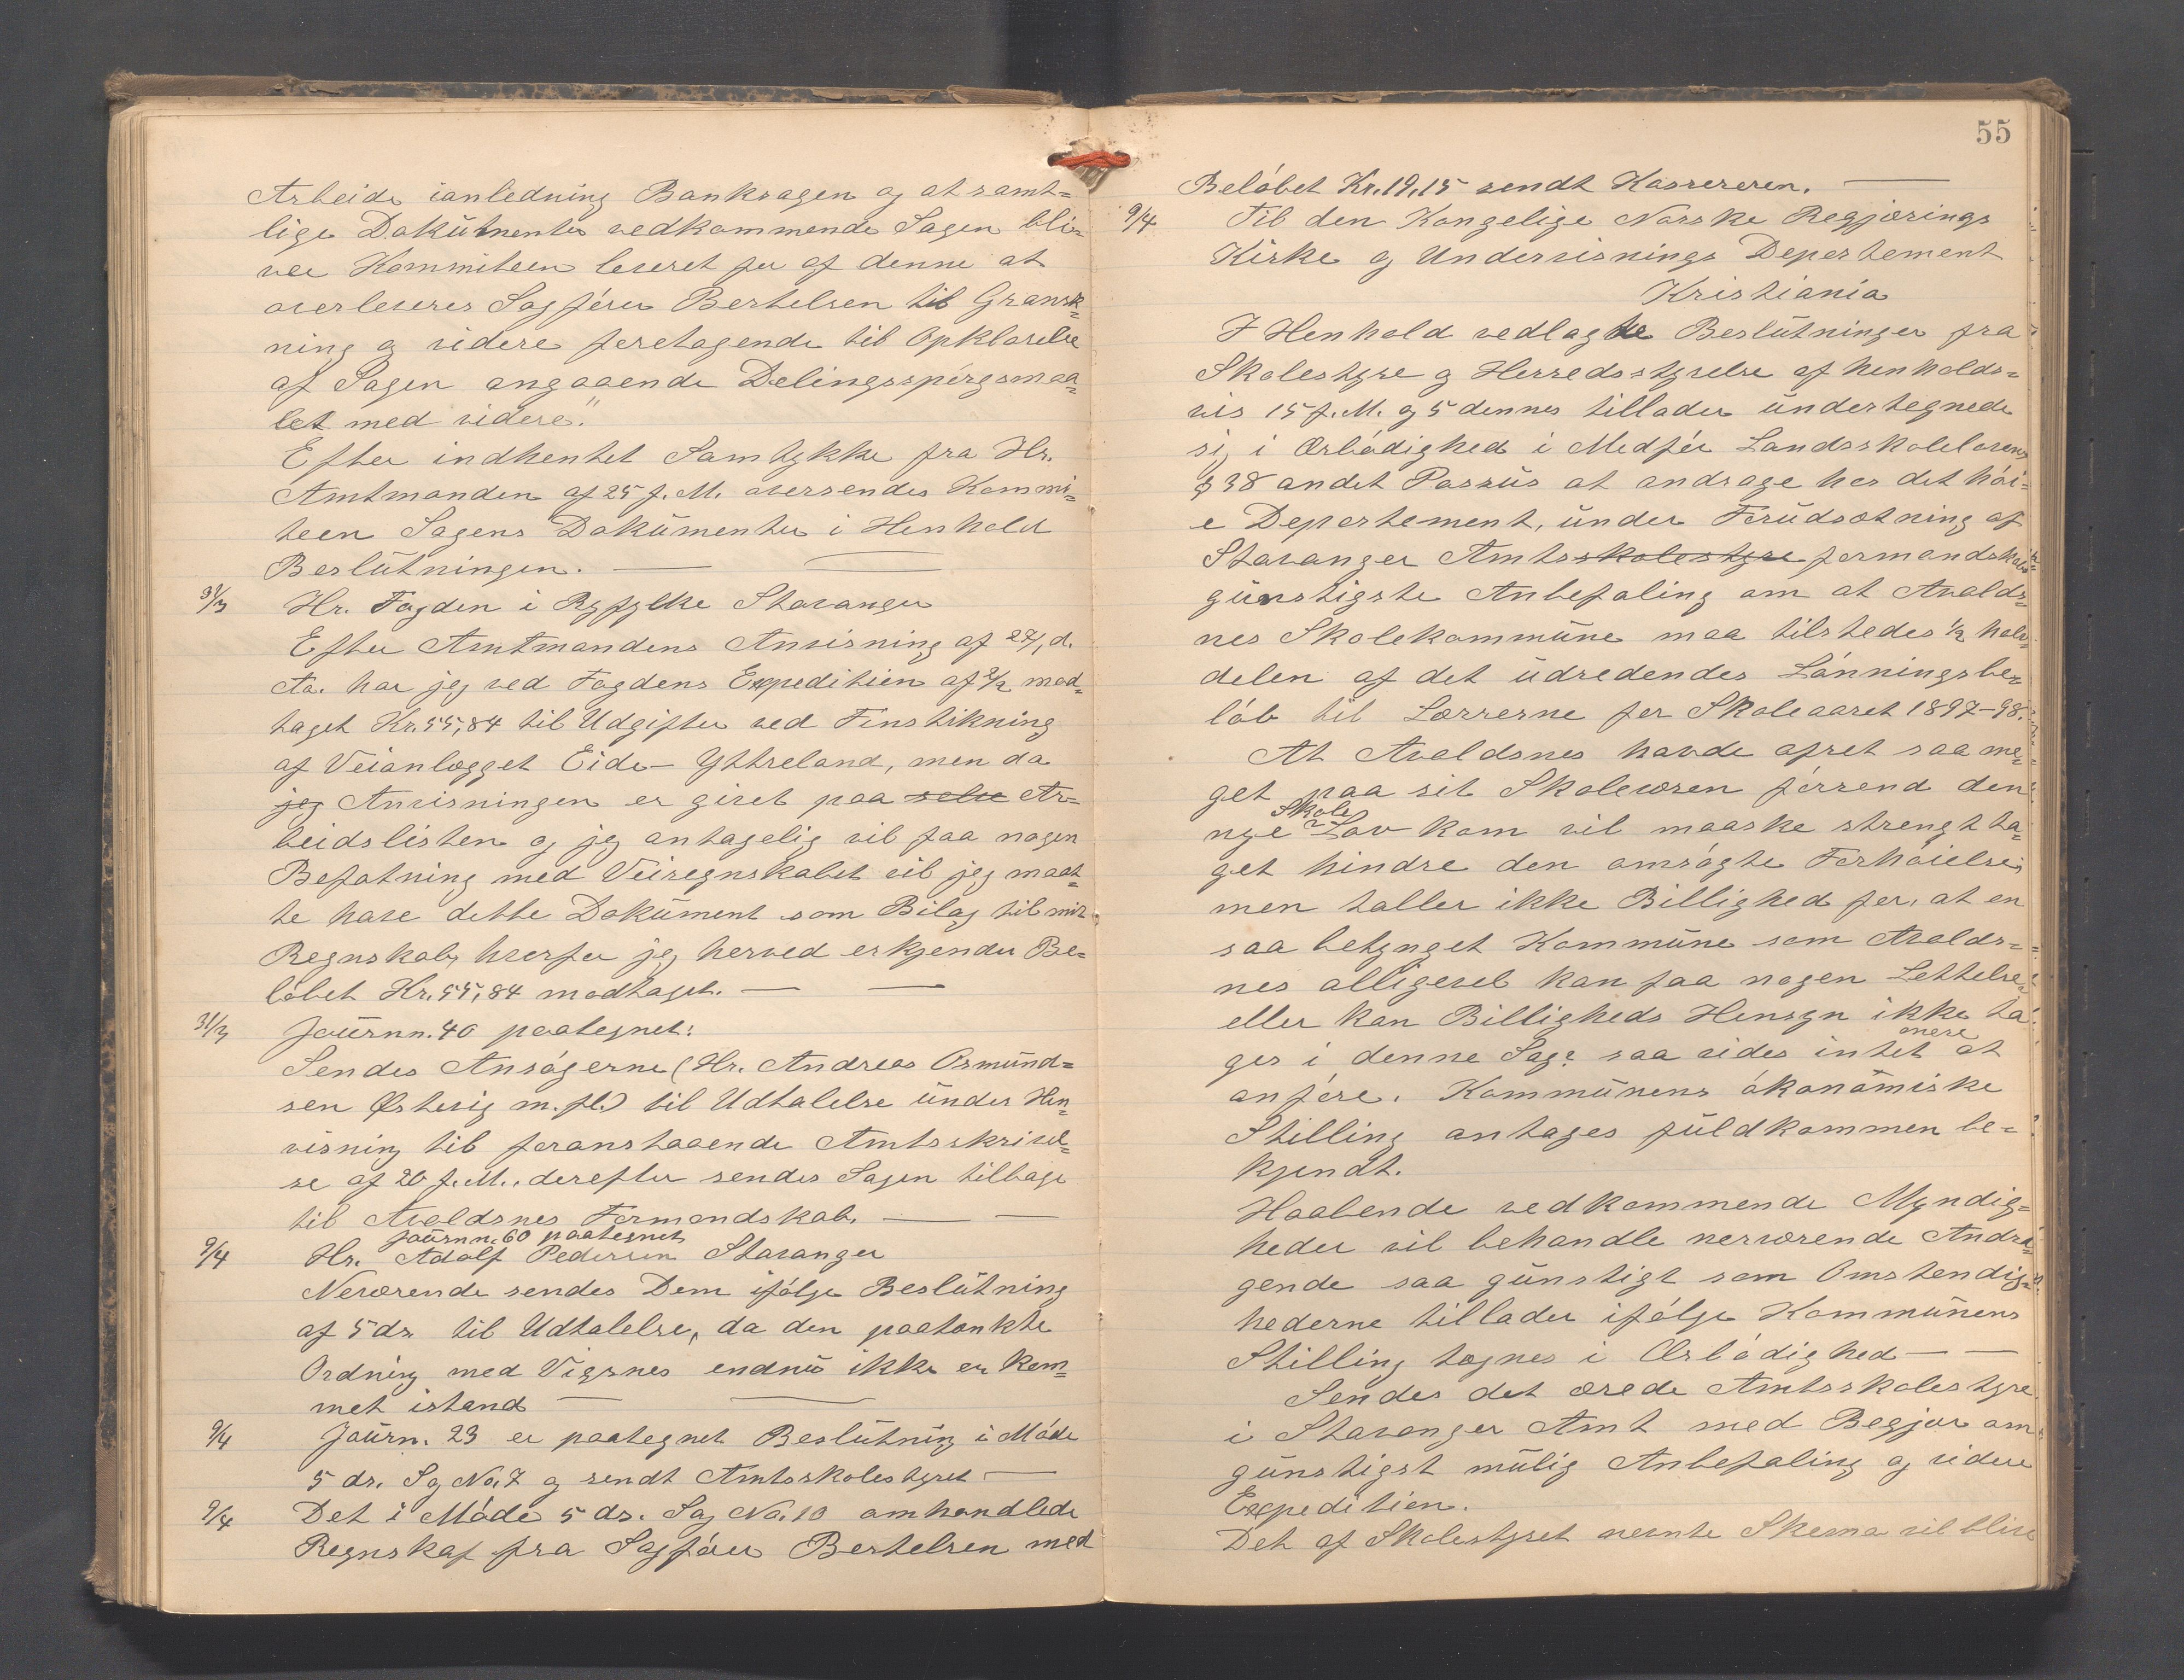 Arbeide ianledning Banksagen og at samt=
lige Dokumenter vedkommende Sagen bli=
ver Kommiteen leveret for af denne at
overleveres Sagfører Bertelsen til Gransk=
ning og videre foretagende til Opklarelse
af Sagen angaaende Delingsspørgsmaa=
let med videre."
Efter indhentet Samtykke fra Hr.
Amtmanden af 25 f. M. oversendes Kommi=
teen Sagens Dokumenter i Henhold
Beslutningen. —
31/3 Hr. Fogden i Ryfylke Stavanger
Efter Amtmandens Anvisning af 27, d.
Aa. har jeg ved Fogdens Expedition af mod=
taget Kr. 55,84 til Udgifter ved Finstikning
af Veianlægget Eide – Yttreland, men da
jeg Anvisningen er givet paa selve Ar=
beidslisten og jeg antagelig vil faa nogen
Befatning med Veiregnskabet vil jeg maat=
te have dette Dokument som Bilag til mit
Regnskab, hvorfor jeg herved erkjender Be=
løbet Kr. 55,84 modtaget. — —
31/3 Journ. 40 paategnet:
Sendes Ansøgerne (Hr. Andreas Osmund=
sen Østevig m. fl.) til Udtalelse under Hen=
visning til foranstaaende Amtsskrivel=
se af 20 f. M., derefter sendes Sagen tilbage
til Avaldsnes Formandskab. — —
Journ. 60 paategnet
9/4 Hr. Adolf Pedersen Stavanger
Nerværende sendes Dem ifølge Beslutning
af 5 ds. til Udtalelse, da den paatænkte
Ordning med Vigsnes endnu ikke er kom=
met istand — —
9/4 Journ. 23 er paategnet Beslutning i Møde
5 ds. Sag No. 7 og sendt Amtsskolestyret —
9/4 Det i Møde 5 ds. Sag No. 10 omhandlede
Regnskaf fra Sagfører Bertelsen med
55
Beløbet Kr. 19,15 sendt Kassereren. —
9/4 Til den Kongelige Norske Regjærings
Kirke og Undervisnings Depertement
Kristiania
I Henhold vedlagte Beslutninger fra
Skolestyre og Herredsstyrelse af henholds=
vis 15 f. M. og 5 dennes tillader undertegnede
sig i Ærbødighed i Medfør Landsskolelovens
§ 38 andet Passus at andrage hos det høi=
e Depertement, under Forudsætning af
Stavanger Amtsskolestyre formandskabs
gunstigste Anbefaling om at Avalds=
nes Skolekommune maa tilstedes 1/2 halv
delen af det udredendes Lønningsbe=
løb til Lærrerne for Skoleaaret 1897-98.
At Avaldsnes havde ofret saa me=
get paa sit Skolevæsen førrend den
nye Skole Lov kom vil maaske strengt ta=
get hindre den omsøgte Forhøielse,
men taller ikke Billighed for, at en
saa betynget Kommune som Avalds=
nes alligevel kan faa nogen Lettelse,
eller kan Billigheds Hensyn ikke ta=
ges i denne Sag? saa vides intet mere at
anføre. Kommunens økonomiske
Stilling antages fuldkommen be=
kjendt.
Haabende vedkommende Myndig=
heder vil behandle nerværende Andra=
gende saa gunstigt som Omstendig=
hederne tillader ifølge Kommunens
Stilling tegnes i Ærbødighed — —
Sendes det ærede Amtsskolestyre
i Stavanger Amt med Begjær om
gunstigst mulig Anbefaling og videre
Expedition.
Det af Skolestyret nevnte Skema vil blive